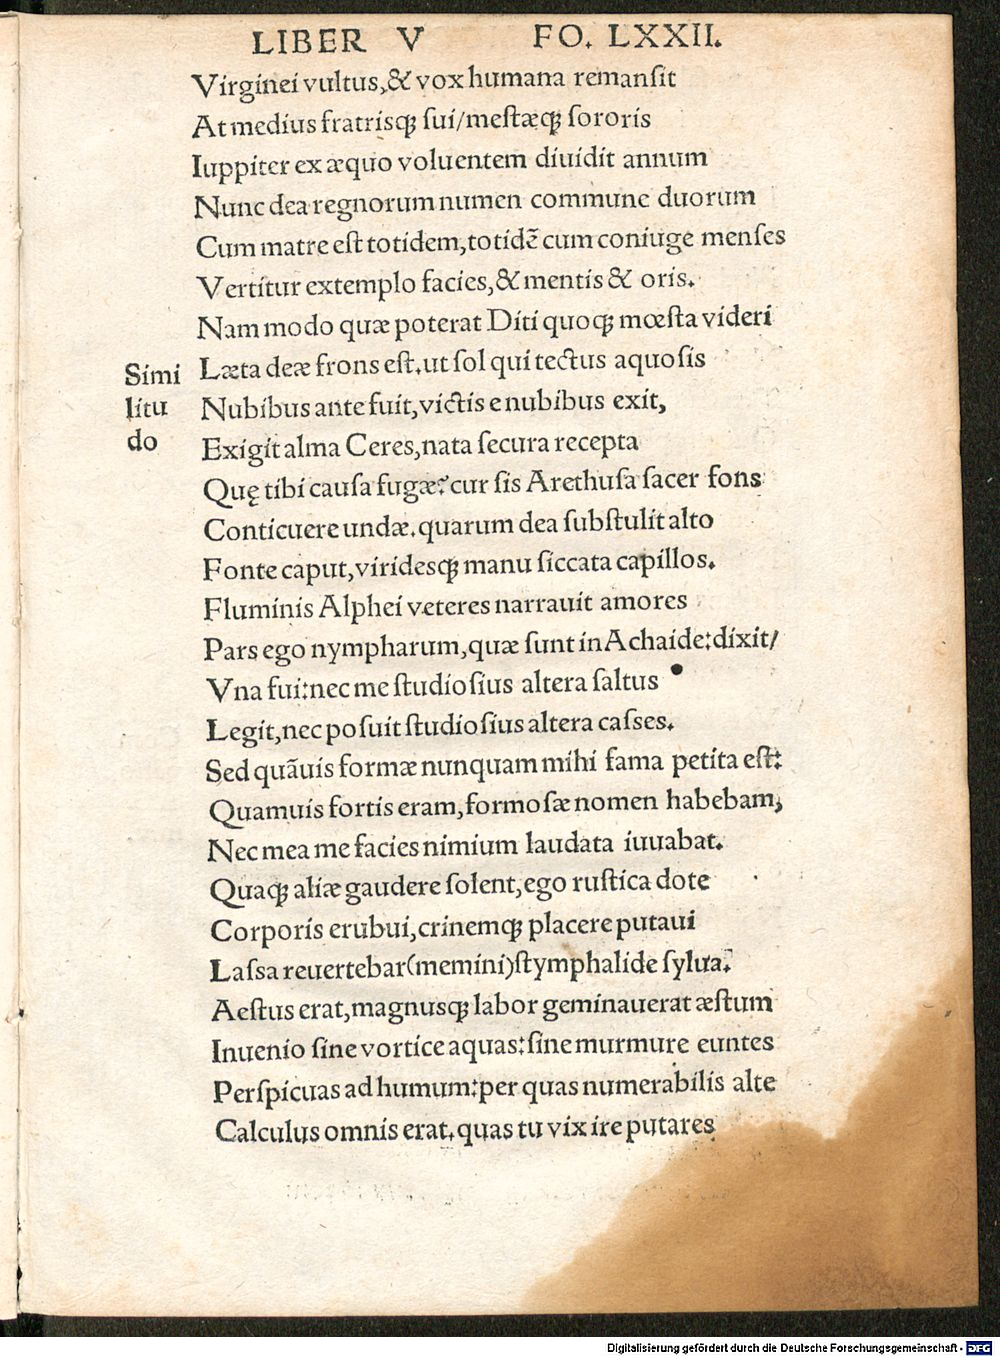 LIBER V FO. LXXII.
Virginei vultus,& vox humana remanſit
At medius fratrisqꝫ ſui/meſtæqꝫ ſororis
Iuppiter ex æquo voluentem diuidit annum
Nunc dea regnorum numen commune duorum
Cum matre eſt totidem,totidē cum coniuge menſes
Vertitur extemplo facies,& mentis & oris.
Nam modo quæ poterat Diti quoqꝫ mœſta videri
Læta deæ frons eſt.ut ſol qui tectus aquoſis
Simi
litu
do
Nubibus ante fuit,victis e nubibus exit,
Exigit alma Ceres,nata ſecura recepta
Quę tibi cauſa fugæ?cur ſis Arethuſa ſacer fons
Conticuere undæ.quarum dea ſubſtulit alto
Fonte caput,viridesqꝫ manu ſiccata capillos.
Fluminis Alphei veteres narrauit amores
Pars ego nympharum,quæ ſunt in Achaide:dixit/
Vna fui:nec me ſtudioſius altera ſaltus
Legit,nec poſuit ſtudioſius altera caſses.
Sed quāuis formæ nunquam mihi fama petita eſt:
Quamuis fortis eram,formoſæ nomen habebam;
Nec mea me facies nimium laudata iuuabat.
Quaqꝫ aliæ gaudere ſolent,ego ruſtica dote
Corporis erubui,crinemqꝫ placere putaui
Laſsa reuertebar(memini)ſtymphalide ſylua.
Aeſtus erat,magnusqꝫ labor geminauerat æſtum
Inuenio ſine vortice aquas:ſine murmure euntes
Perſpicuas ad humum:per quas numerabilis alte
Calculus omnis erat.quas tu vix ire putares
Digitalisierung gefördert durch die Deutsche Forschungsgemeinschaft - DFG